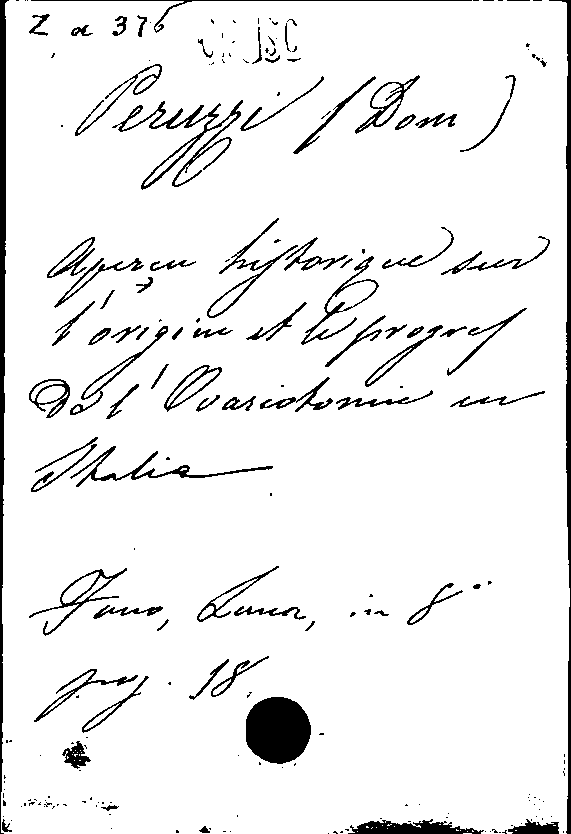 Z a 376
Peruzzi (Dom)
Aperçu historique sur
l'origine et le progres
De l'Ovariotomie en
Italia
Fano, Lana, in 8°
pag. 18